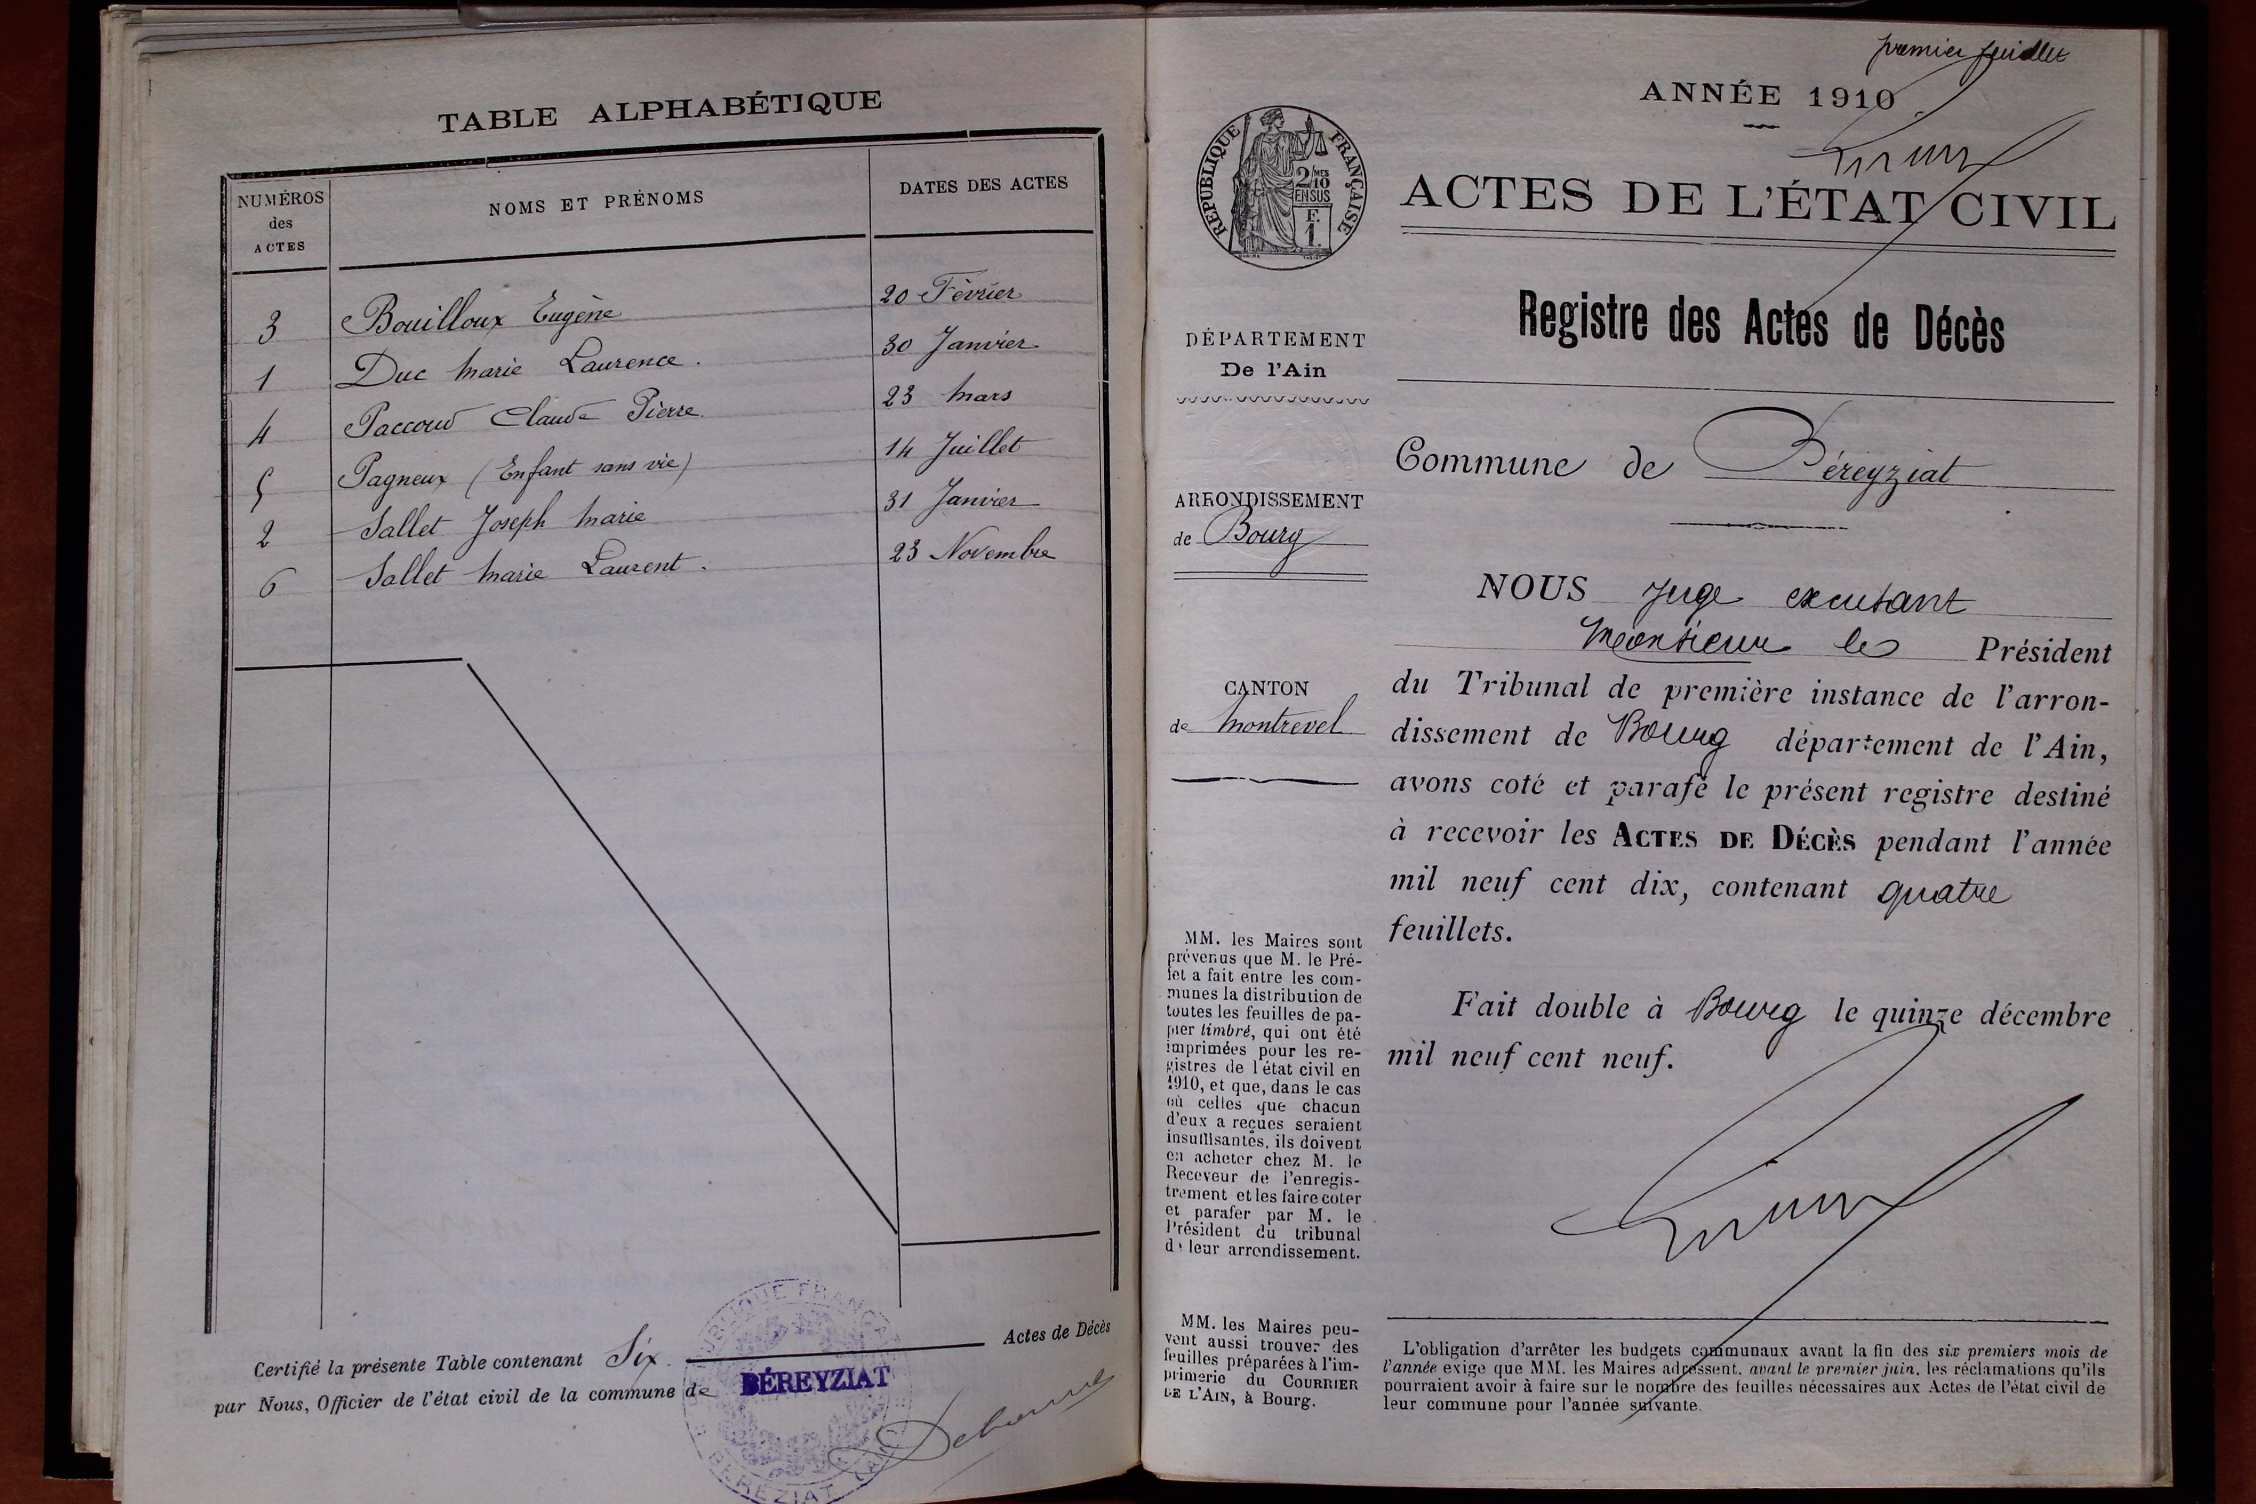 TABLE ALPHABÉTIQUE
NUMÉROS des ACTES
NOMS ET PRÉNOMS
DATES DES ACTES
3 Bouilloux Eugène 20 Février
1 Duc Marie Laurence. 30 Janvier
4 Paccoud Claude Pierre. 23 Mars
5 Pagneux (Enfant sans vie) 14 Juillet
2 Sallet Joseph Marie 31 Janvier
6 Sallet Marie Laurent. 23 Novembre
Certifié la présente Table contenant Six. Actes de Décès
par Nous, Officier de l'état civil de la commune de BÉREYZIAT
premier feuillet
ANNÉE 1910
RÉPUBLIQUE FRANÇAISE
2/10 MES
EN SUS
F.
1.
ACTES DE L'ÉTAT CIVIL
Registre des Actes de Décès
DÉPARTEMENT
De l'Ain
ARRONDISSEMENT
de Bourg
CANTON
de Montrevel
MM. les Maires sont
prévenus que M. le Pré-
fet a fait entre les com-
munes la distribution de
toutes les feuilles de pa-
pier timbré, qui ont été
imprimées pour les re-
gistres de l'état civil en
1910, et que, dans le cas
où celles que chacun
d'eux a reçues seraient
insuffisantes, ils doivent
en acheter chez M. le
Receveur de l'enregis-
trement et les faire coter
et parafer par M. le
Président du tribunal
de leur arrondissement.
MM. les Maires peu-
vent aussi trouver des
feuilles préparées à l'im-
primerie du COURRIER
DE L'AIN, à Bourg.
Commune de Béreyziat
NOUS Juge excusant
Monsieur le Président
du Tribunal de première instance de l'arron-
dissement de Bourg département de l'Ain,
avons coté et parafé le présent registre destiné
à recevoir les ACTES DE DÉCÈS pendant l'année
mil neuf cent dix, contenant quatre
feuillets.
Fait double à Bourg le quinze décembre
mil neuf cent neuf.
L'obligation d'arrêter les budgets communaux avant la fin des six premiers mois de
l'année exige que MM. les Maires adressent, avant le premier juin, les réclamations qu'ils
pourraient avoir à faire sur le nombre des feuilles nécessaires aux Actes de l'état civil de
leur commune pour l'année suivante.